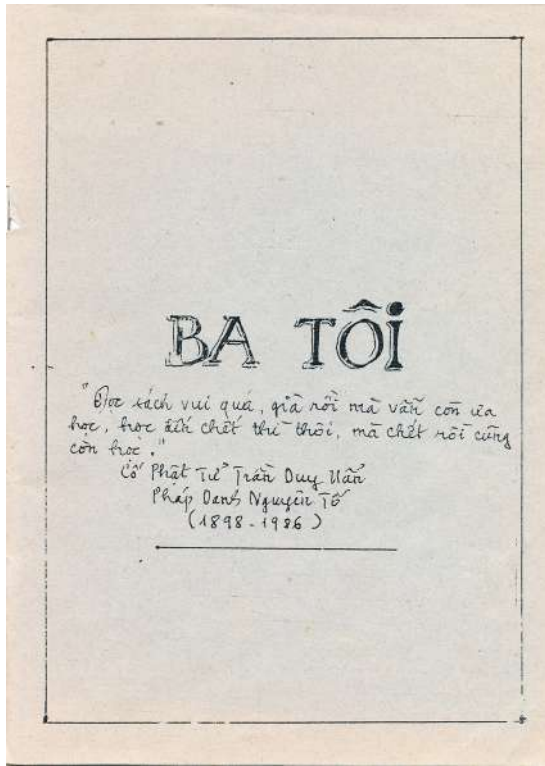 BA TÔI
"Đọc sách vui quá, già rồi mà vẫn còn ưa
học, học đến chết thì thôi, mà chết rồi cũng
còn học."
Cố Phật Tử Trần Duy Uẩn
Pháp Danh Nguyên Tố
(1898-1986)